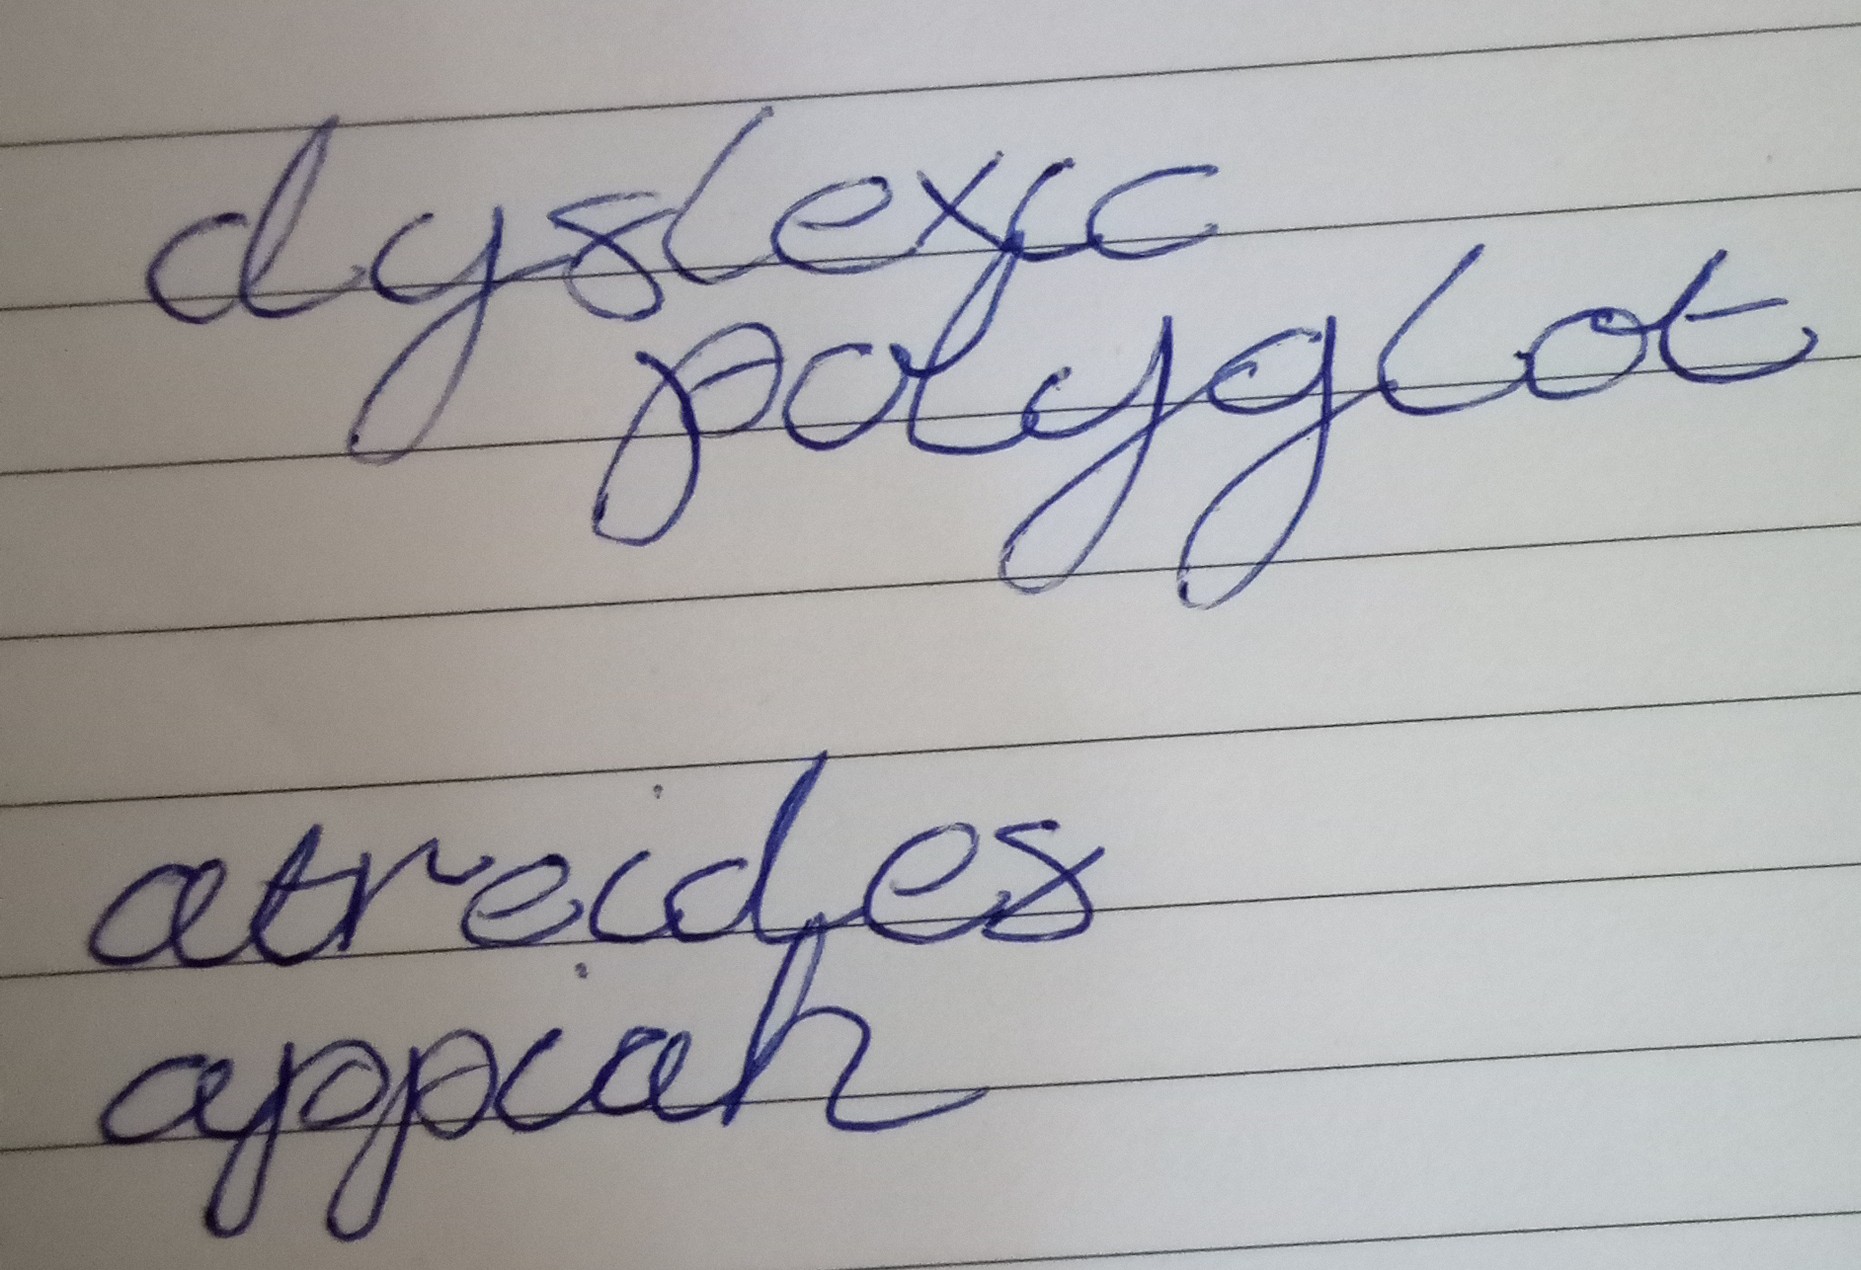 dyslexic
polyglot
atreides
appiah